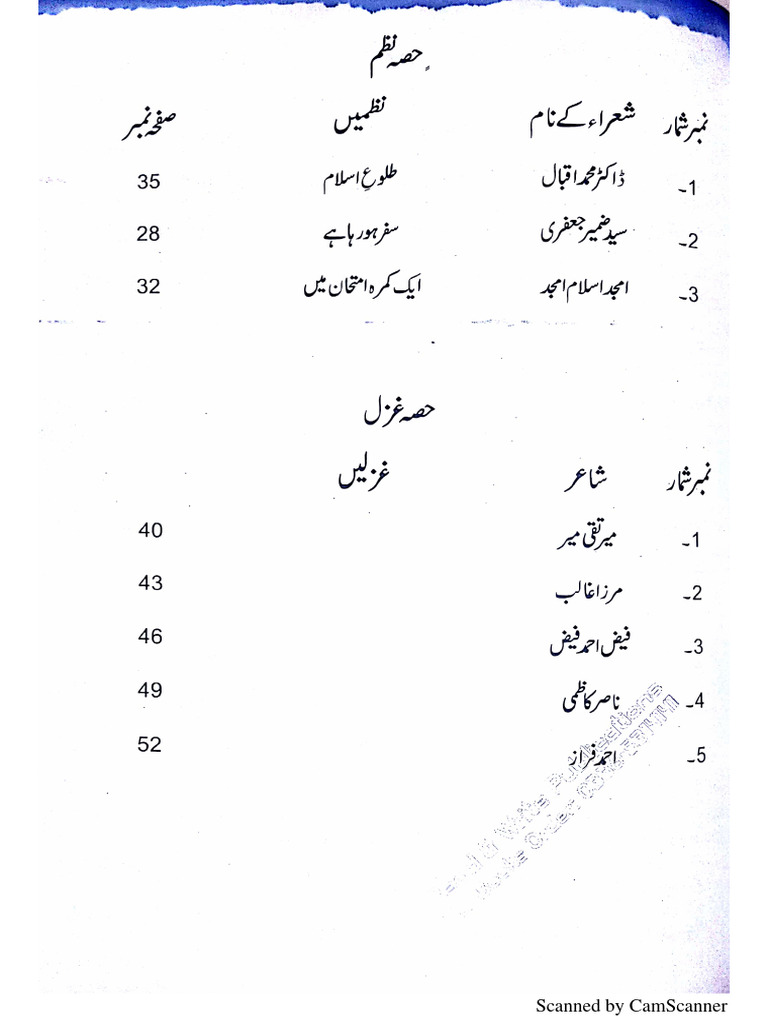 حصہ نظم
نمبر شمار شعراء کے نام نظمیں صفحہ نمبر
1۔ ڈاکٹر محمد اقبال طلوعِ اسلام 35
2۔ سید ضمیر جعفری سفر ہو رہا ہے 28
3۔ امجد اسلام امجد ایک کمرہ امتحان میں 32
حصہ غزل
نمبر شمار شاعر غزلیں
1۔ میر تقی میر 40
2۔ مرزا غالب 43
3۔ فیض احمد فیض 46
4۔ ناصر کاظمی 49
5۔ احمد فراز 52
Write Publications
Order
Scanned by CamScanner